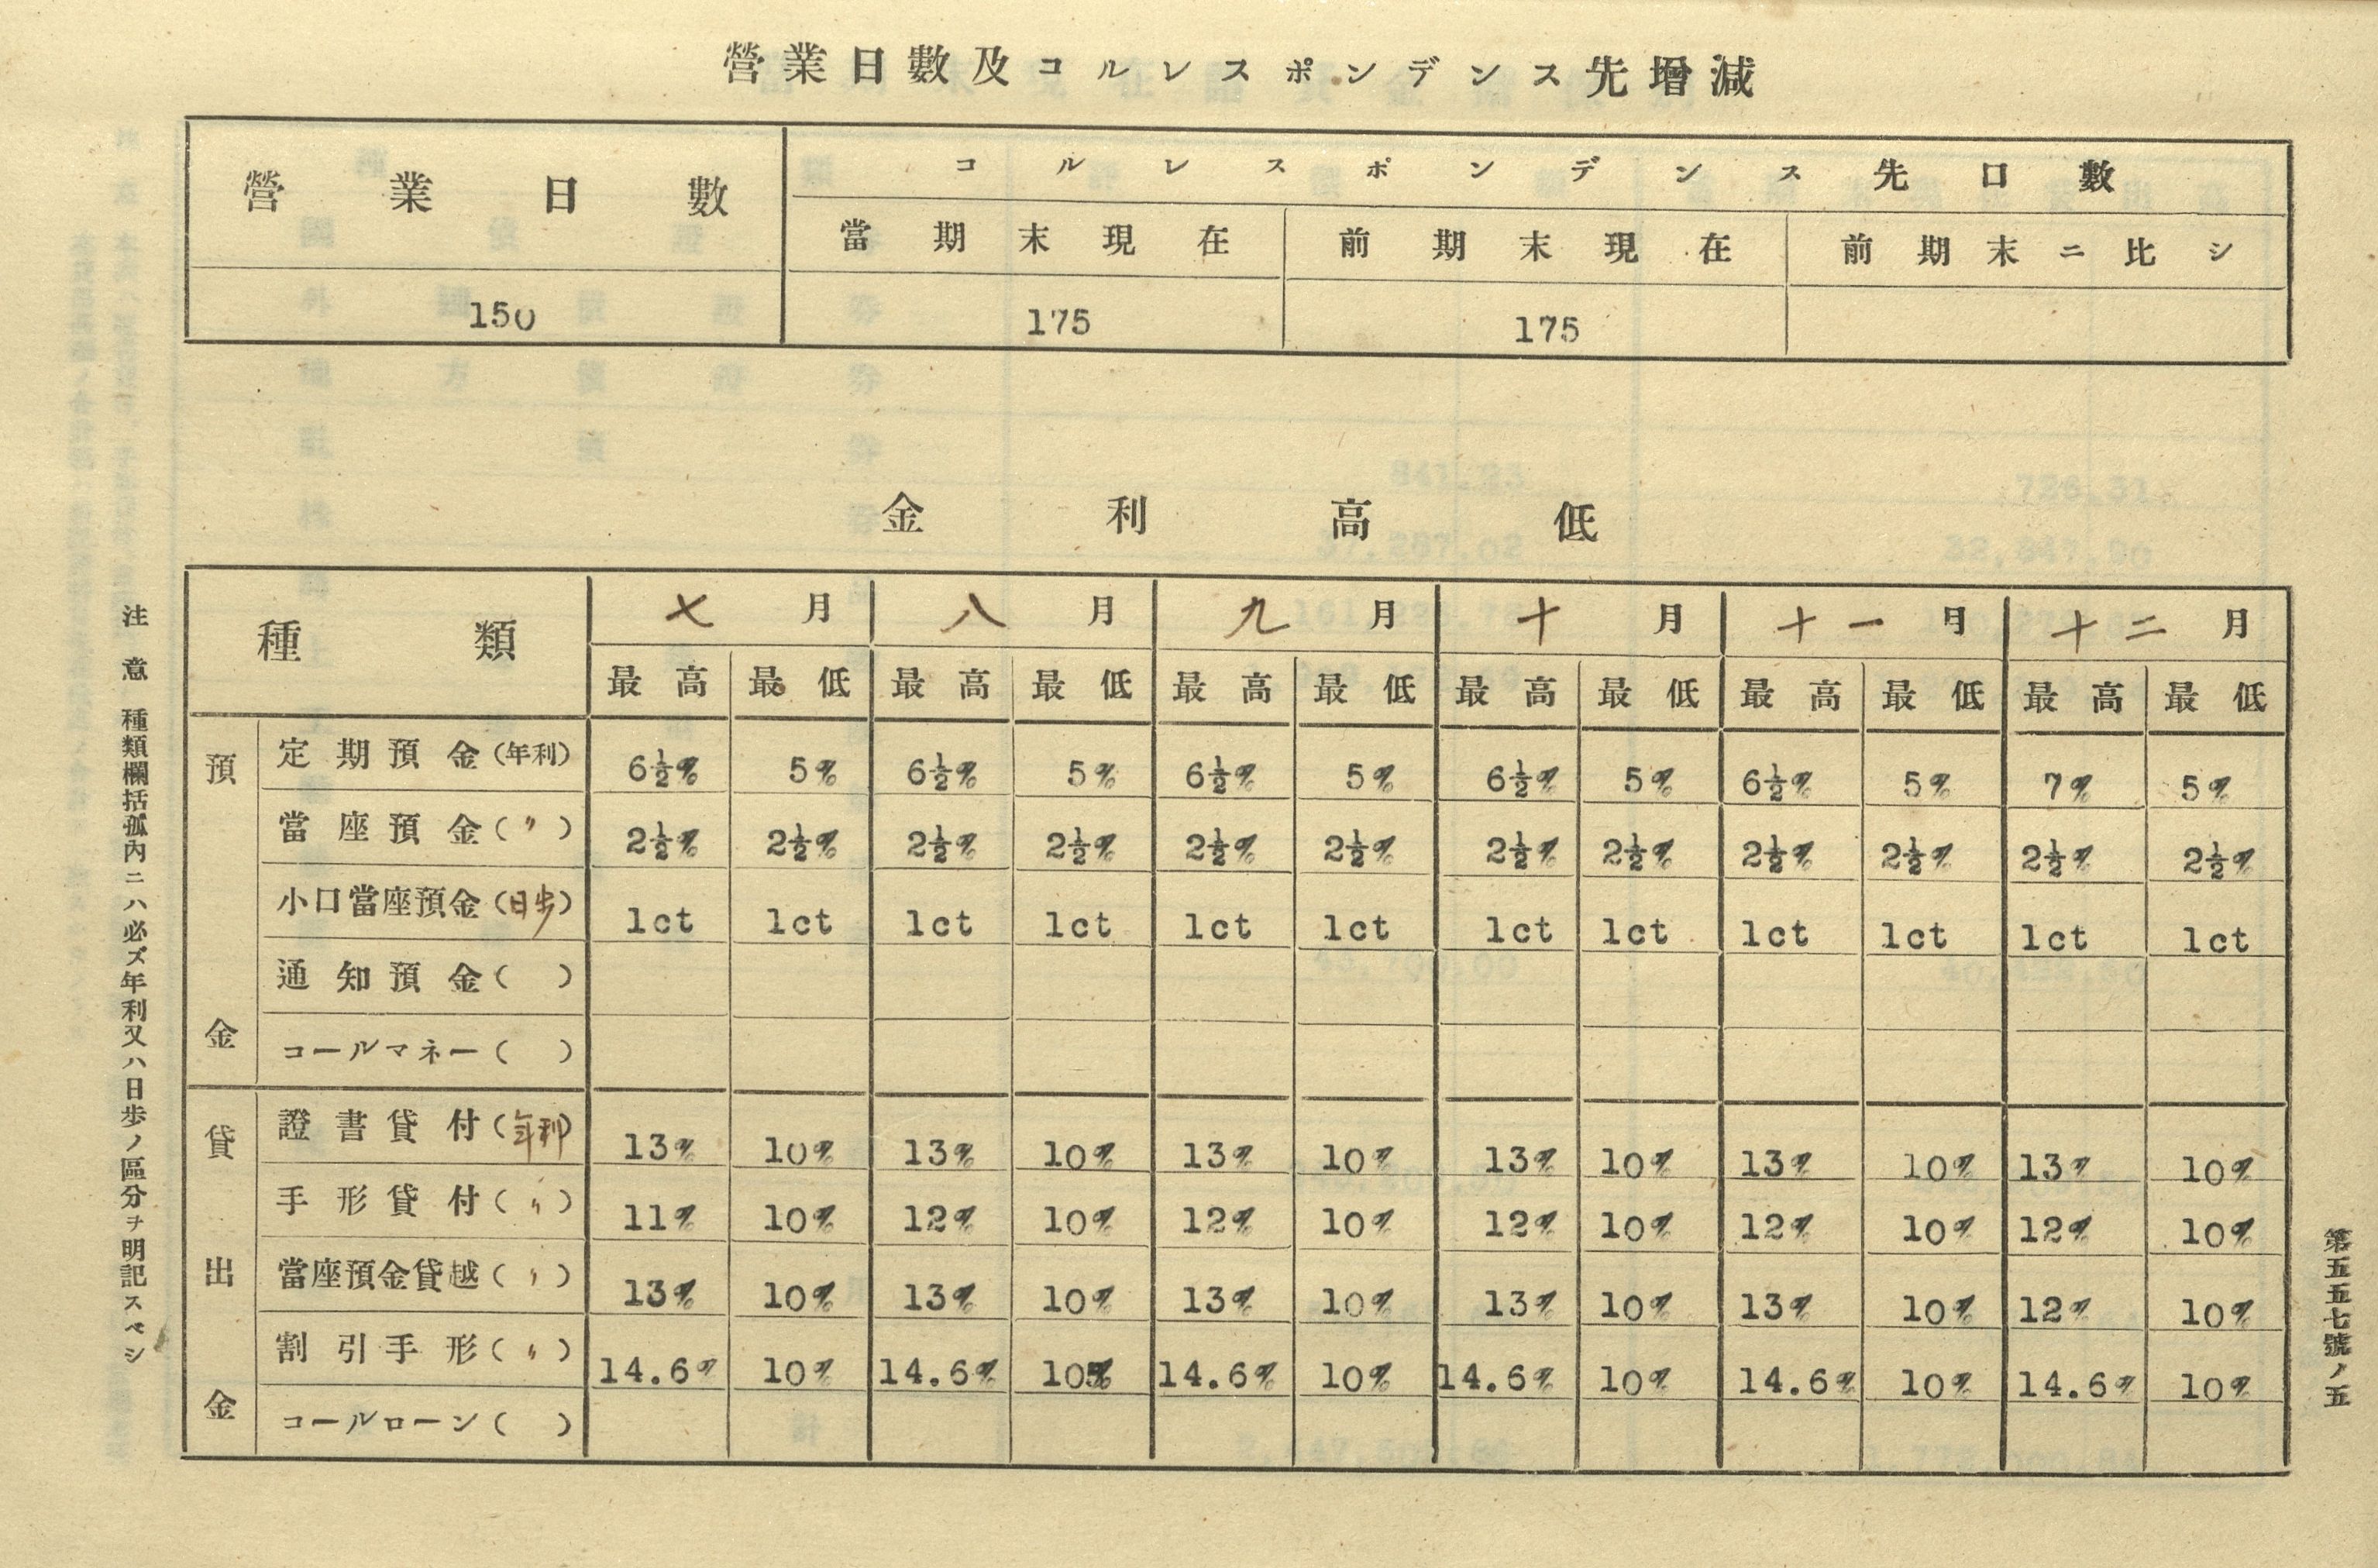 營業日數及コルレスポンデンス先增減
營業日數
コルレスポンデンス先口數
當期末現在 前期末現在 前期末ニ比シ
150 175 175
金利高低
種類 七月 八月 九月 十月 十一月 十二月
最高 最低 最高 最低 最高 最低 最高 最低 最高 最低 最高 最低
預金
定期預金(年利) 6½% 5% 6½% 5% 6½% 5% 6½% 5% 6½% 5% 7% 5%
當座預金(〃) 2½% 2½% 2½% 2½% 2½% 2½% 2½% 2½% 2½% 2½% 2½% 2½%
小口當座預金(日歩) 1ct 1ct 1ct 1ct 1ct 1ct 1ct 1ct 1ct 1ct 1ct 1ct
通知預金( )
コールマネー( )
貸出金
證書貸付(年利) 13% 10% 13% 10% 13% 10% 13% 10% 13% 10% 13% 10%
手形貸付(〃) 11% 10% 12% 10% 12% 10% 12% 10% 12% 10% 12% 10%
當座預金貸越(〃) 13% 10% 13% 10% 13% 10% 13% 10% 13% 10% 12% 10%
割引手形(〃) 14.6% 10% 14.6% 10% 14.6% 10% 14.6% 10% 14.6% 10% 14.6% 10%
コールローン( )
注意 種類欄括孤內ニハ必ズ年利又ハ日歩ノ區分ヲ明記スベシ
第五五七號ノ五